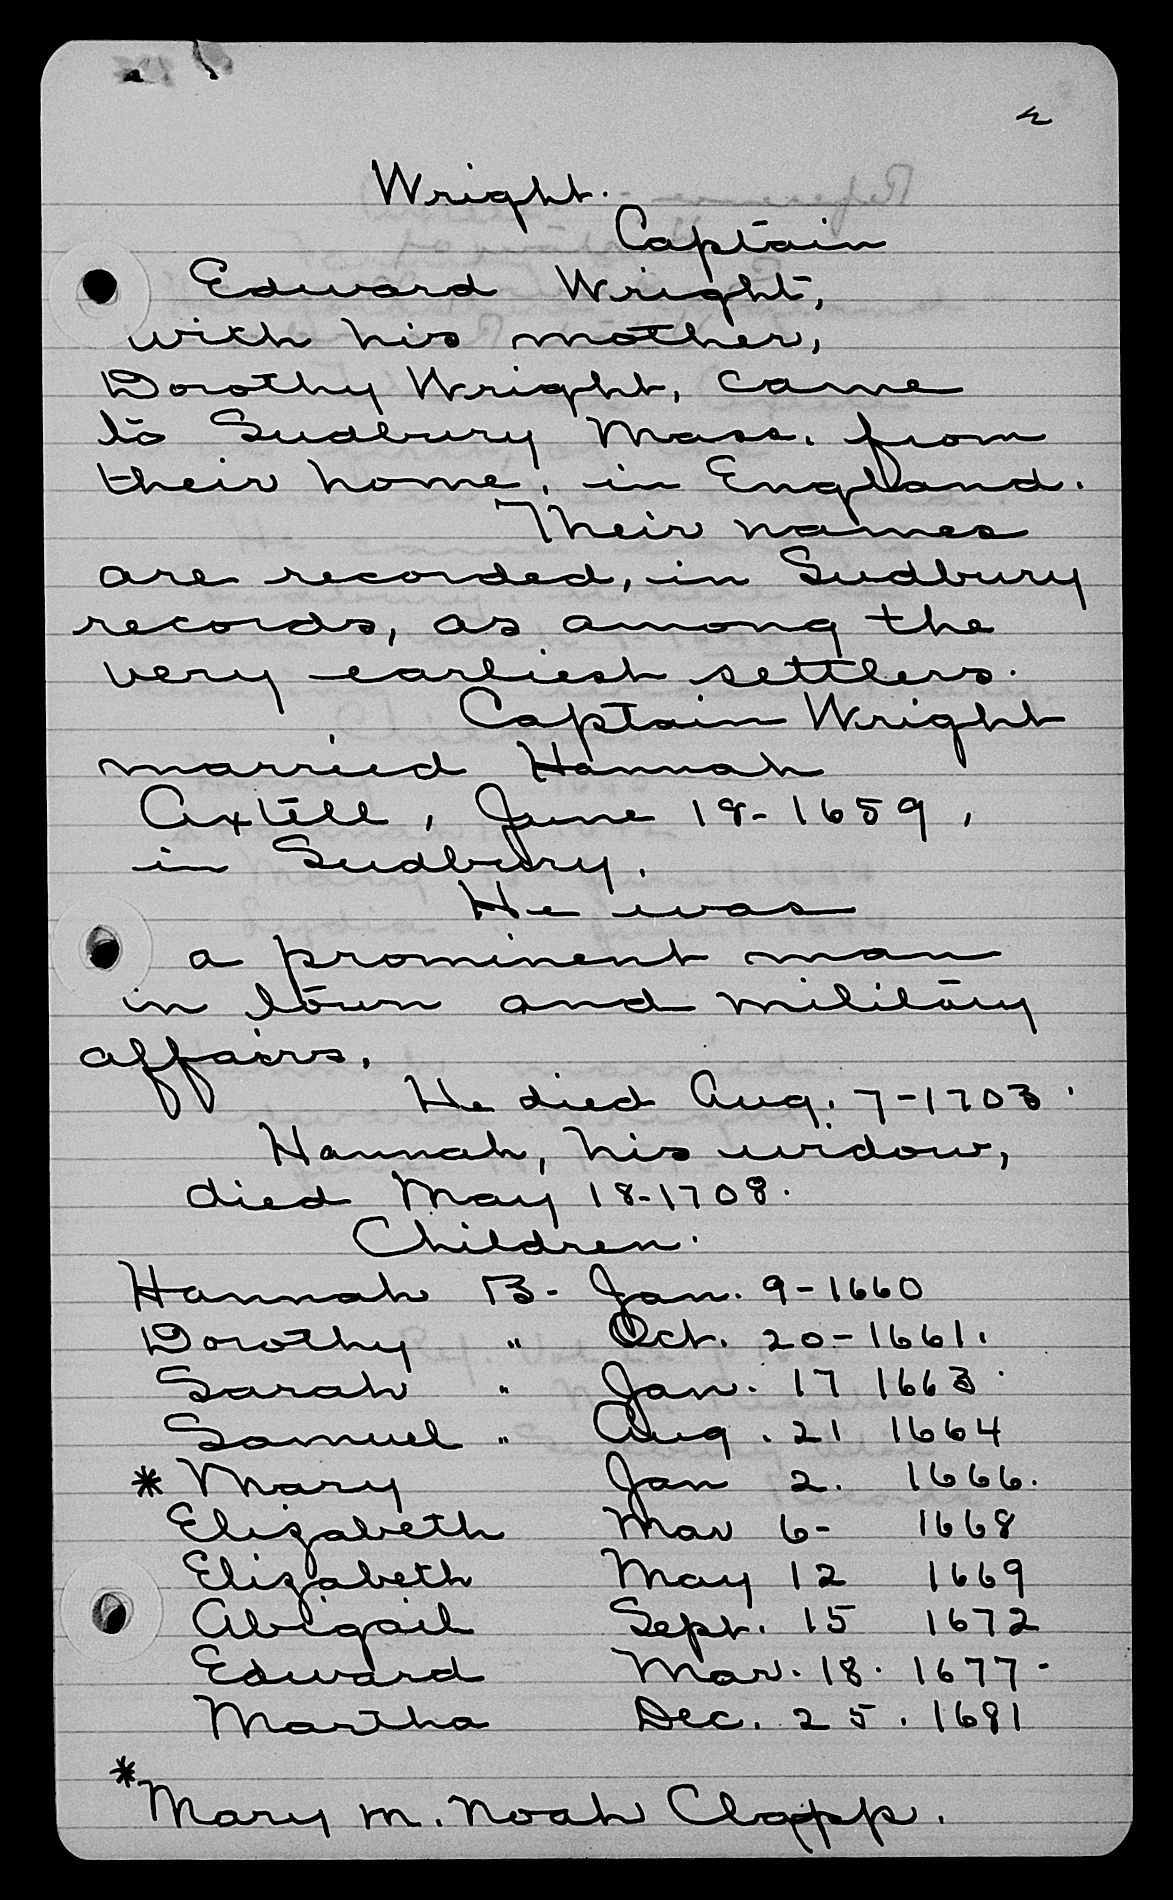 2
Wright.
Captain
Edward Wright,
with his mother,
Dorothy Wright, came
to Sudbury Mass. from
their home, in England.
Their names
are recorded, in Sudbury
records, as among the
very earliest settlers.
Captain Wright
married Hannah
Axtell, June 18-1659,
in Sudbury.
He was
a prominent man
in town and military
affairs.
He died Aug. 7-1703.
Hannah, his widow,
died May 18-1708.
Children.
Hannah B- Jan. 9-1660
Dorothy " Oct. 20-1661.
Sarah " Jan. 17 1663.
Samuel " Aug. 21 1664
* Mary Jan 2. 1666.
Elizabeth Mar 6- 1668
Elizabeth May 12 1669
Abigail Sept. 15 1672
Edward Mar. 18. 1677-
Martha Dec. 25. 1681
* Mary m. Noah Clapp.